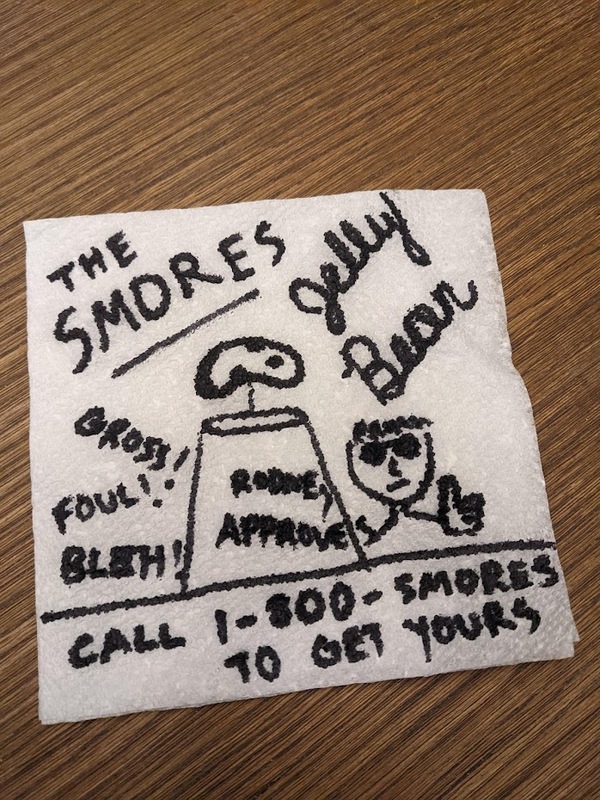 THE
SMORES
Jelly
Bean
GROSS!
FOUL!
BLEH!
APPROVES
CALL 1-800-SMORES
TO GET YOURS